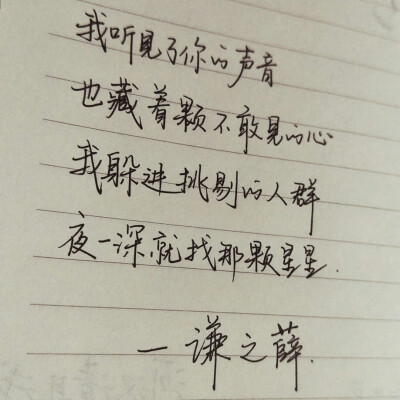 我听见了你的声音
也藏着颗不敢见的心
我躲进挑剔的人群
夜一深就找那颗星星.
—谦之薛.